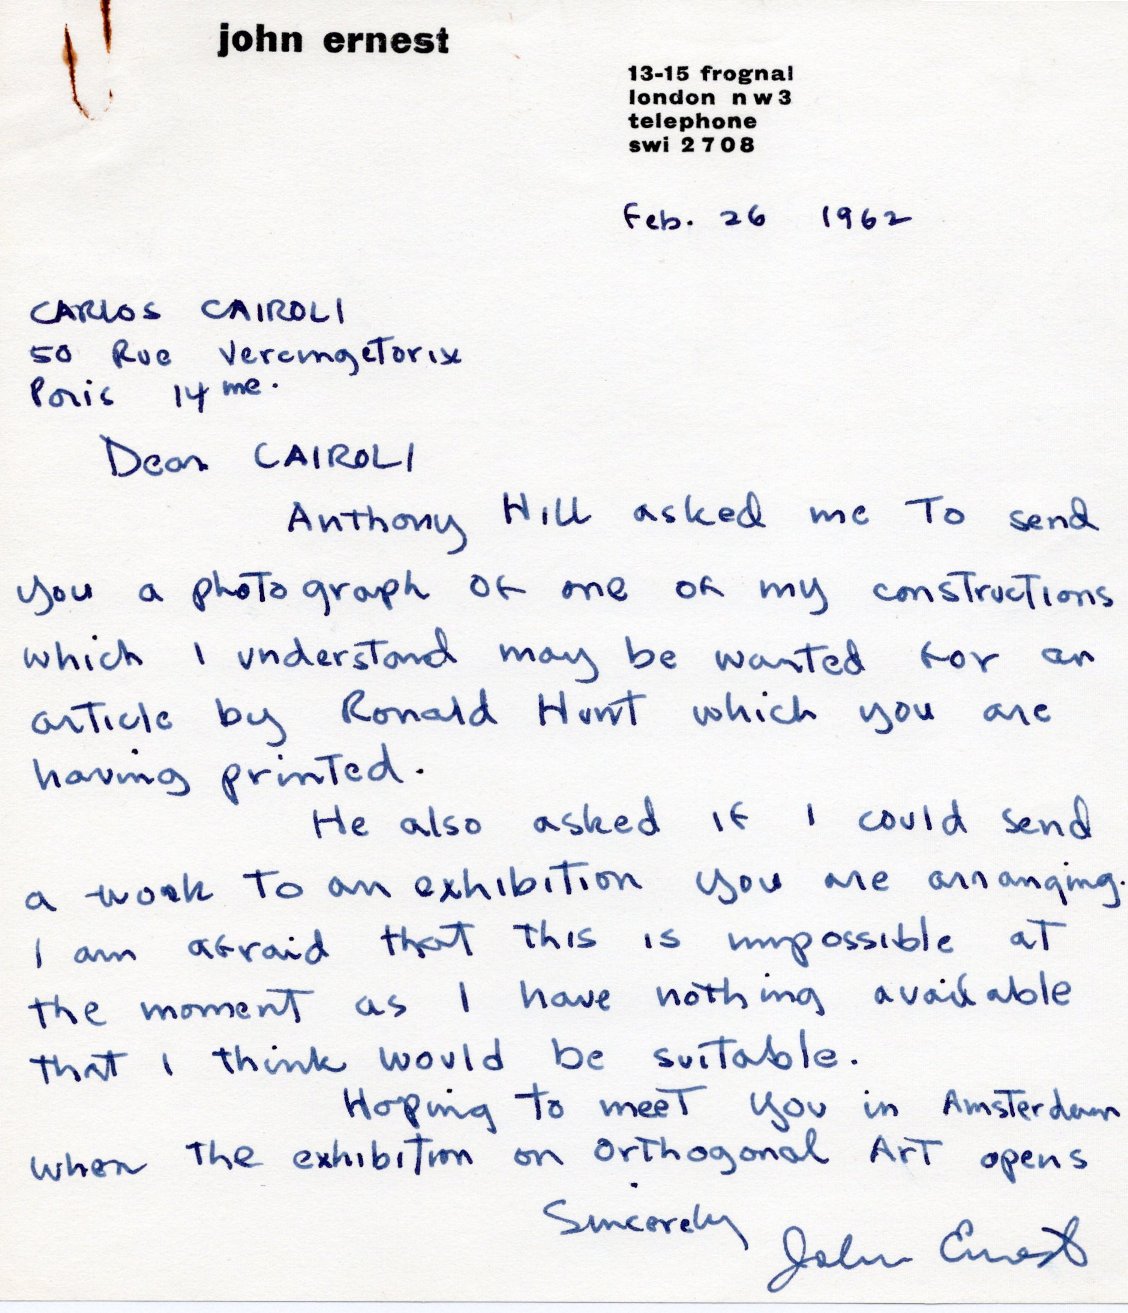 john ernest
13-15 frognal
london nw3
telephone
swi 2708
Feb. 26 1962
CARLOS CAIROLI
50 Rue Vercingetorix
Paris 14me.
Dear CAIROLI
Anthony Hill asked me to send
you a photograph of one of my constructions
which I understand may be wanted for an
article by Ronald Hunt which you are
having printed.
He also asked if I could send
a work to an exhibition you are arranging.
I am afraid that this is impossible at
the moment as I have nothing available
that I think would be suitable.
Hoping to meet you in Amsterdam
when the exhibition on Orthogonal Art opens
Sincerely
John Ernest